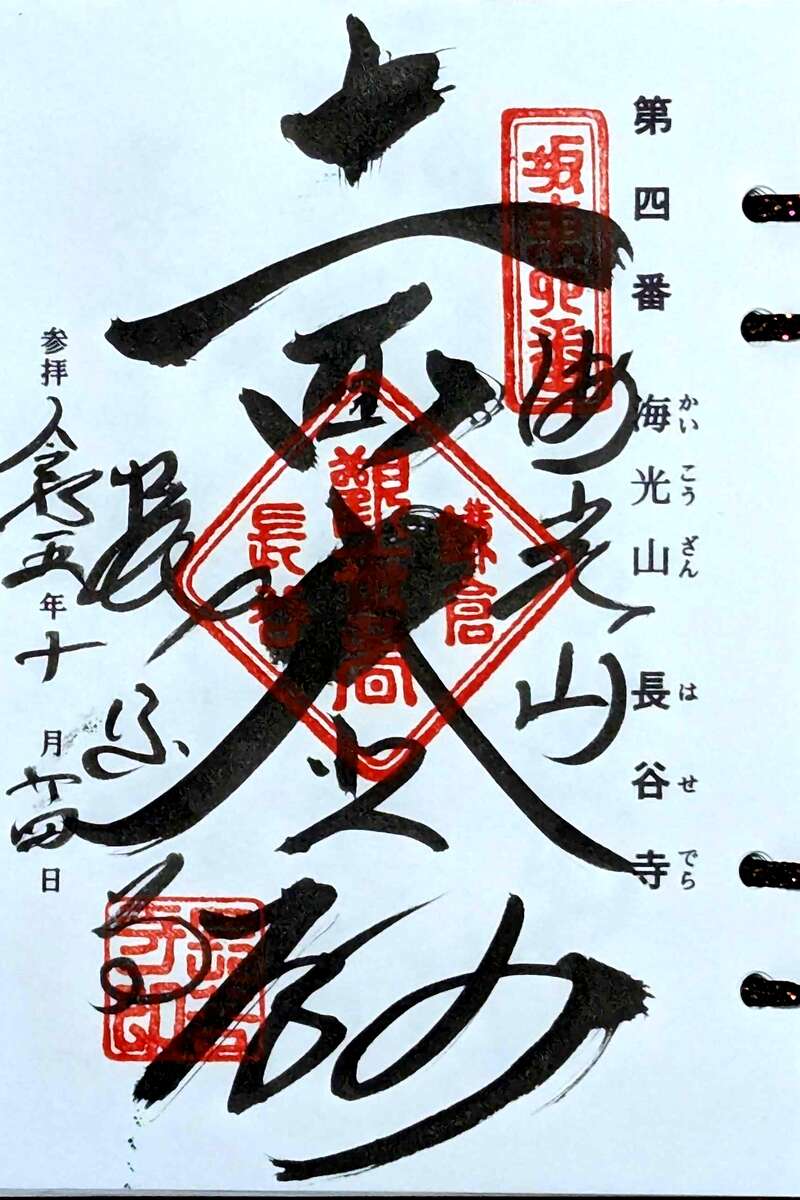 第四番 海光山 長谷寺
かいこうざん はせでら
坂東四番
海光山
十一面大悲殿
鎌倉
觀世音
長谷
長谷寺
参拝 令和五年十月廿四日